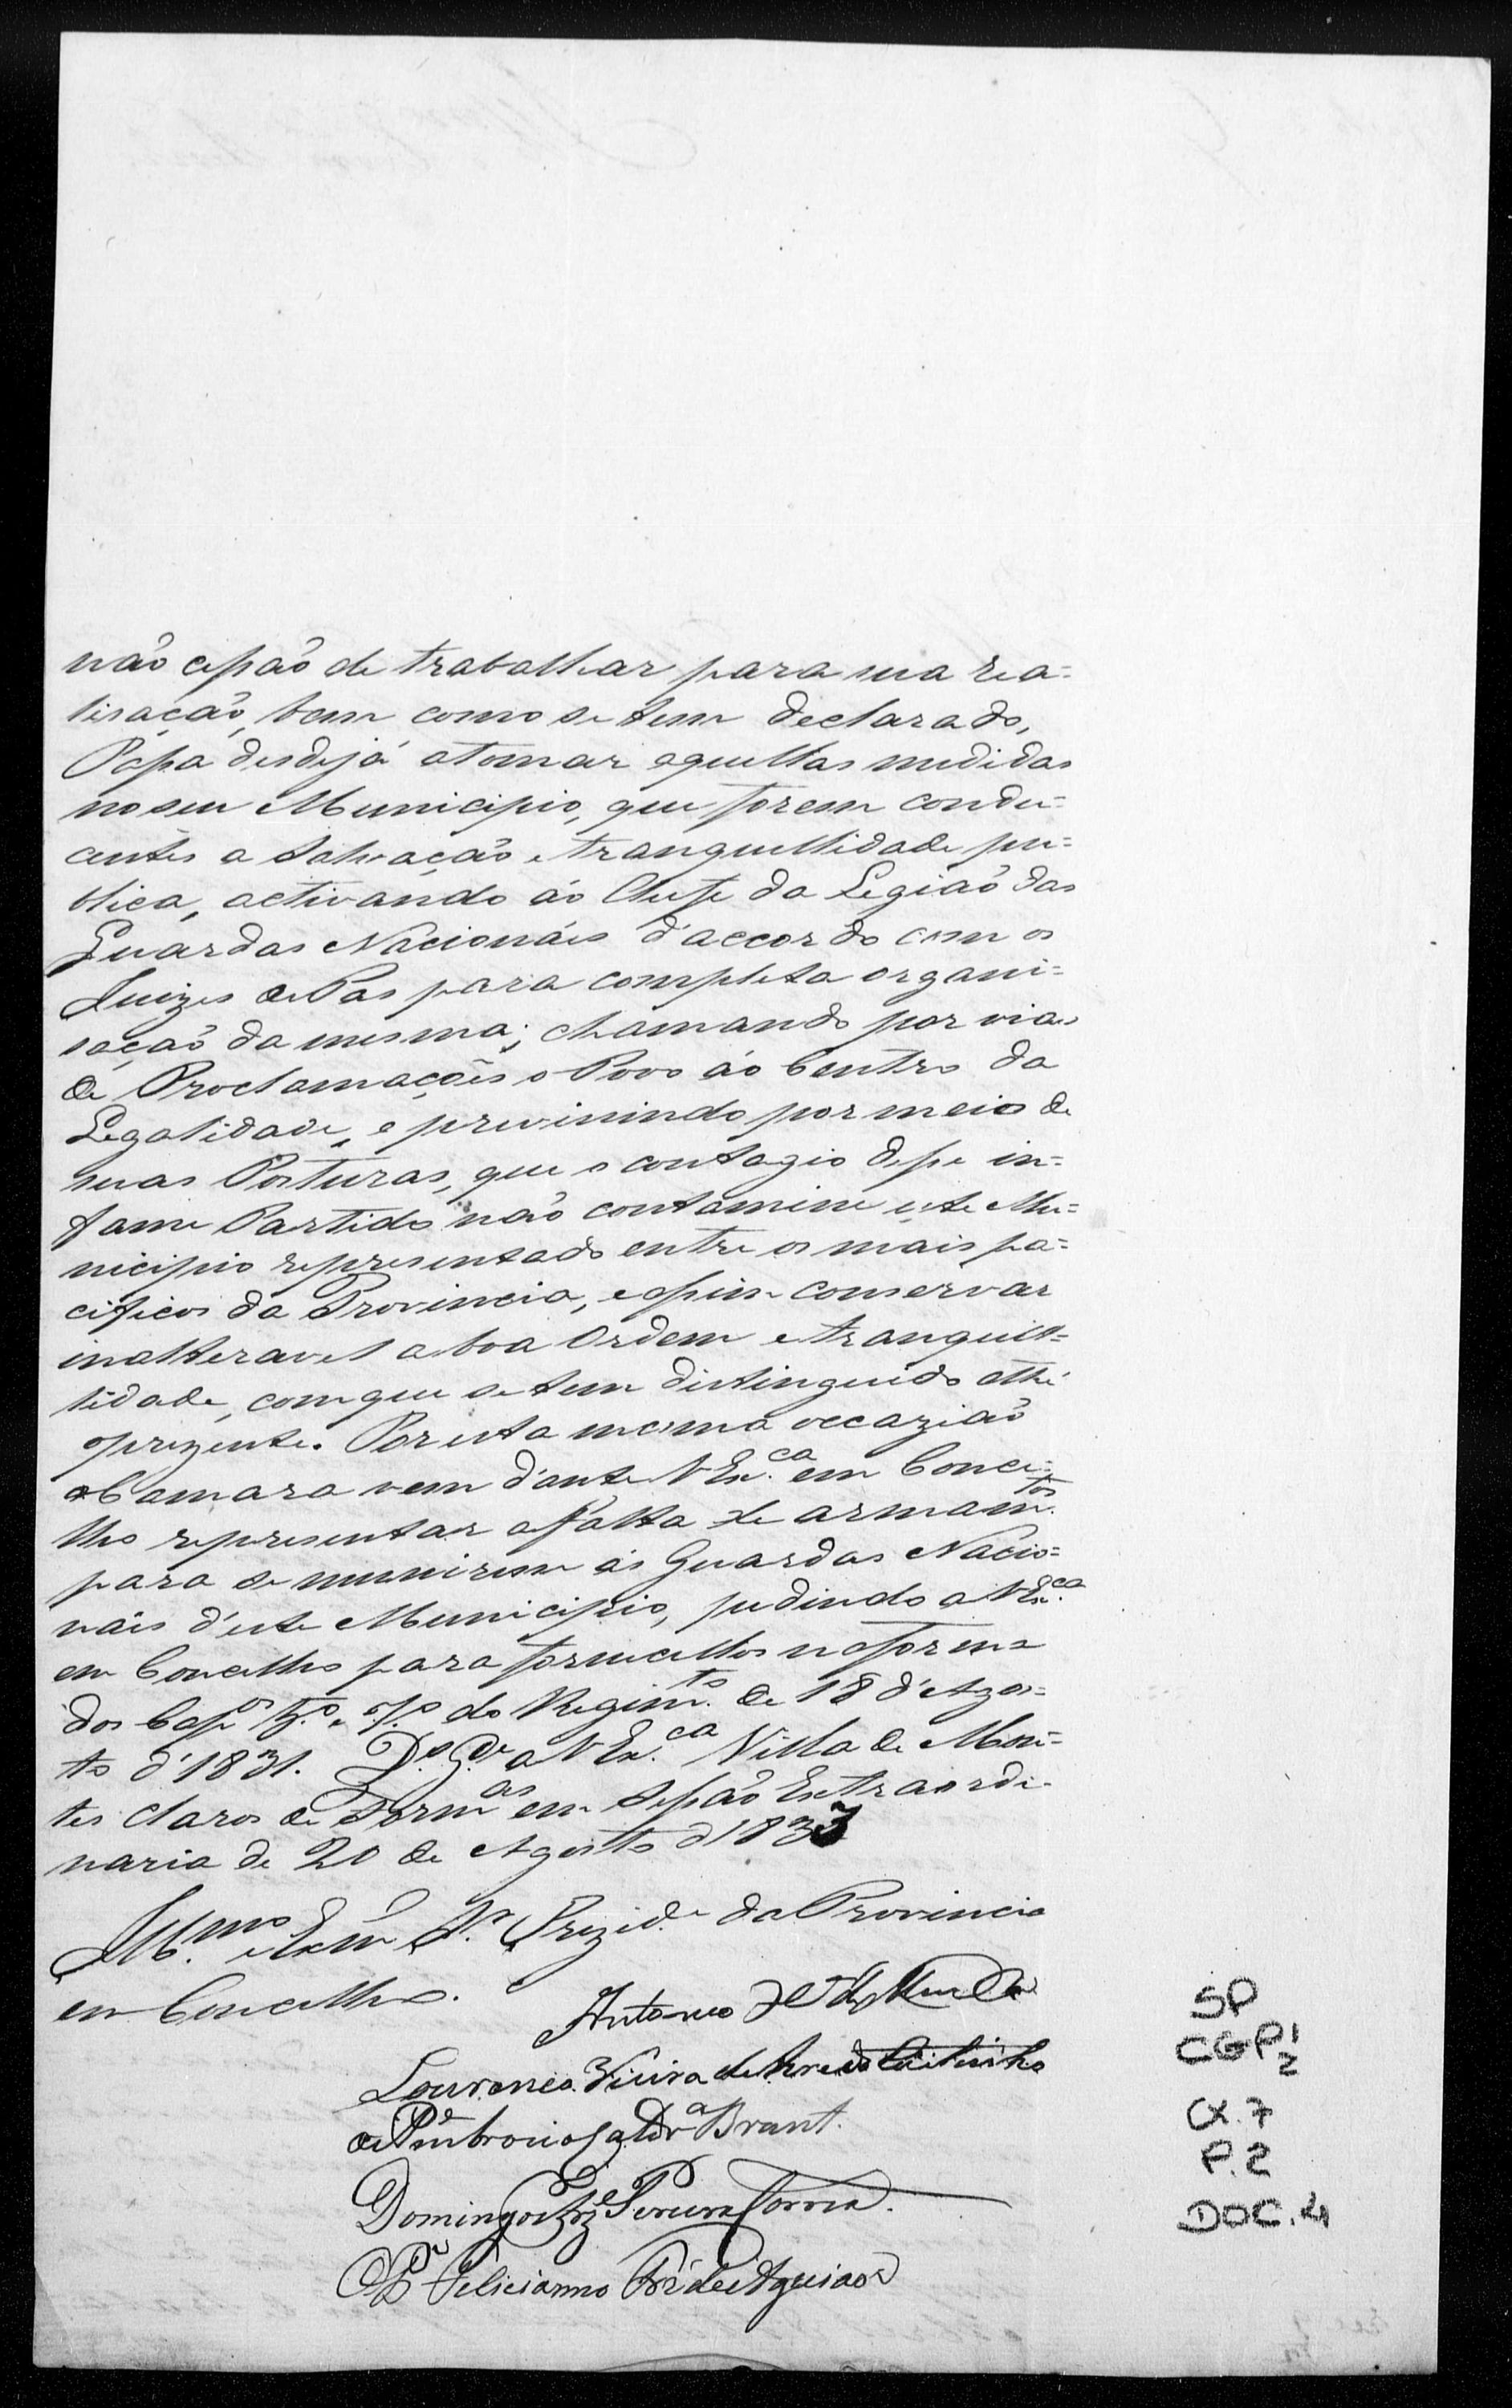 não cessão de trabalhar para sua rea=
lisação, bem como se tem declarado,
Passa desdejá atomar aquellas medidas
noseu Municipio, que forem condu=
centes a Salvação, e tranquillidade pu=
blica, activando áo Chefe da Legiaõ das
Guardas Nacionáes d'accordo com os
Juizes de Pas para completa organi=
saçaõ da mesma; chamando por vias
de Proclamações o Povo áo Centro da
Legalidade, e prevenindo por meio de
suas Posturas, que o contagio desse in=
fame Partido não contamine este Mu=
nicipio representado entre os mais pa=
cificos da Provincia, e assim conservar
inalteravel a boa Ordem e tranquil=
lidade, comque se tem distinguido athé
oprezente. Por esta mesma occaziaõ
a Camara vem d'ante VEx.ca em Conce=
lho representar afalta de armam.tos
para se munirem as Guardas Nacio=
náis d'este Municipio, pedindo a VEx.ca
em Concelho para fornecellos na forma
dos Cap.os 5.º e 7.º do Regim.to de 18 d'Agos=
to d'1831. D.s G.de a VEx.ca Villa de Mon=
tes claros de Form.as em Sessão Extraordi-
naria de 20 de Agosto d'1833
Ill.mo e Exm Sr. Prezid.e da Provincia
em Concelho.
Antonio
Lourenço Vieira de Azeredo Coitinho
Ambrozio Cald.a Brant.
Domingos Pereira Correa.
O P.e Felicianno Frz de Aguiar
SP
CGP 1/2
CX.7
P.2
DOC.4